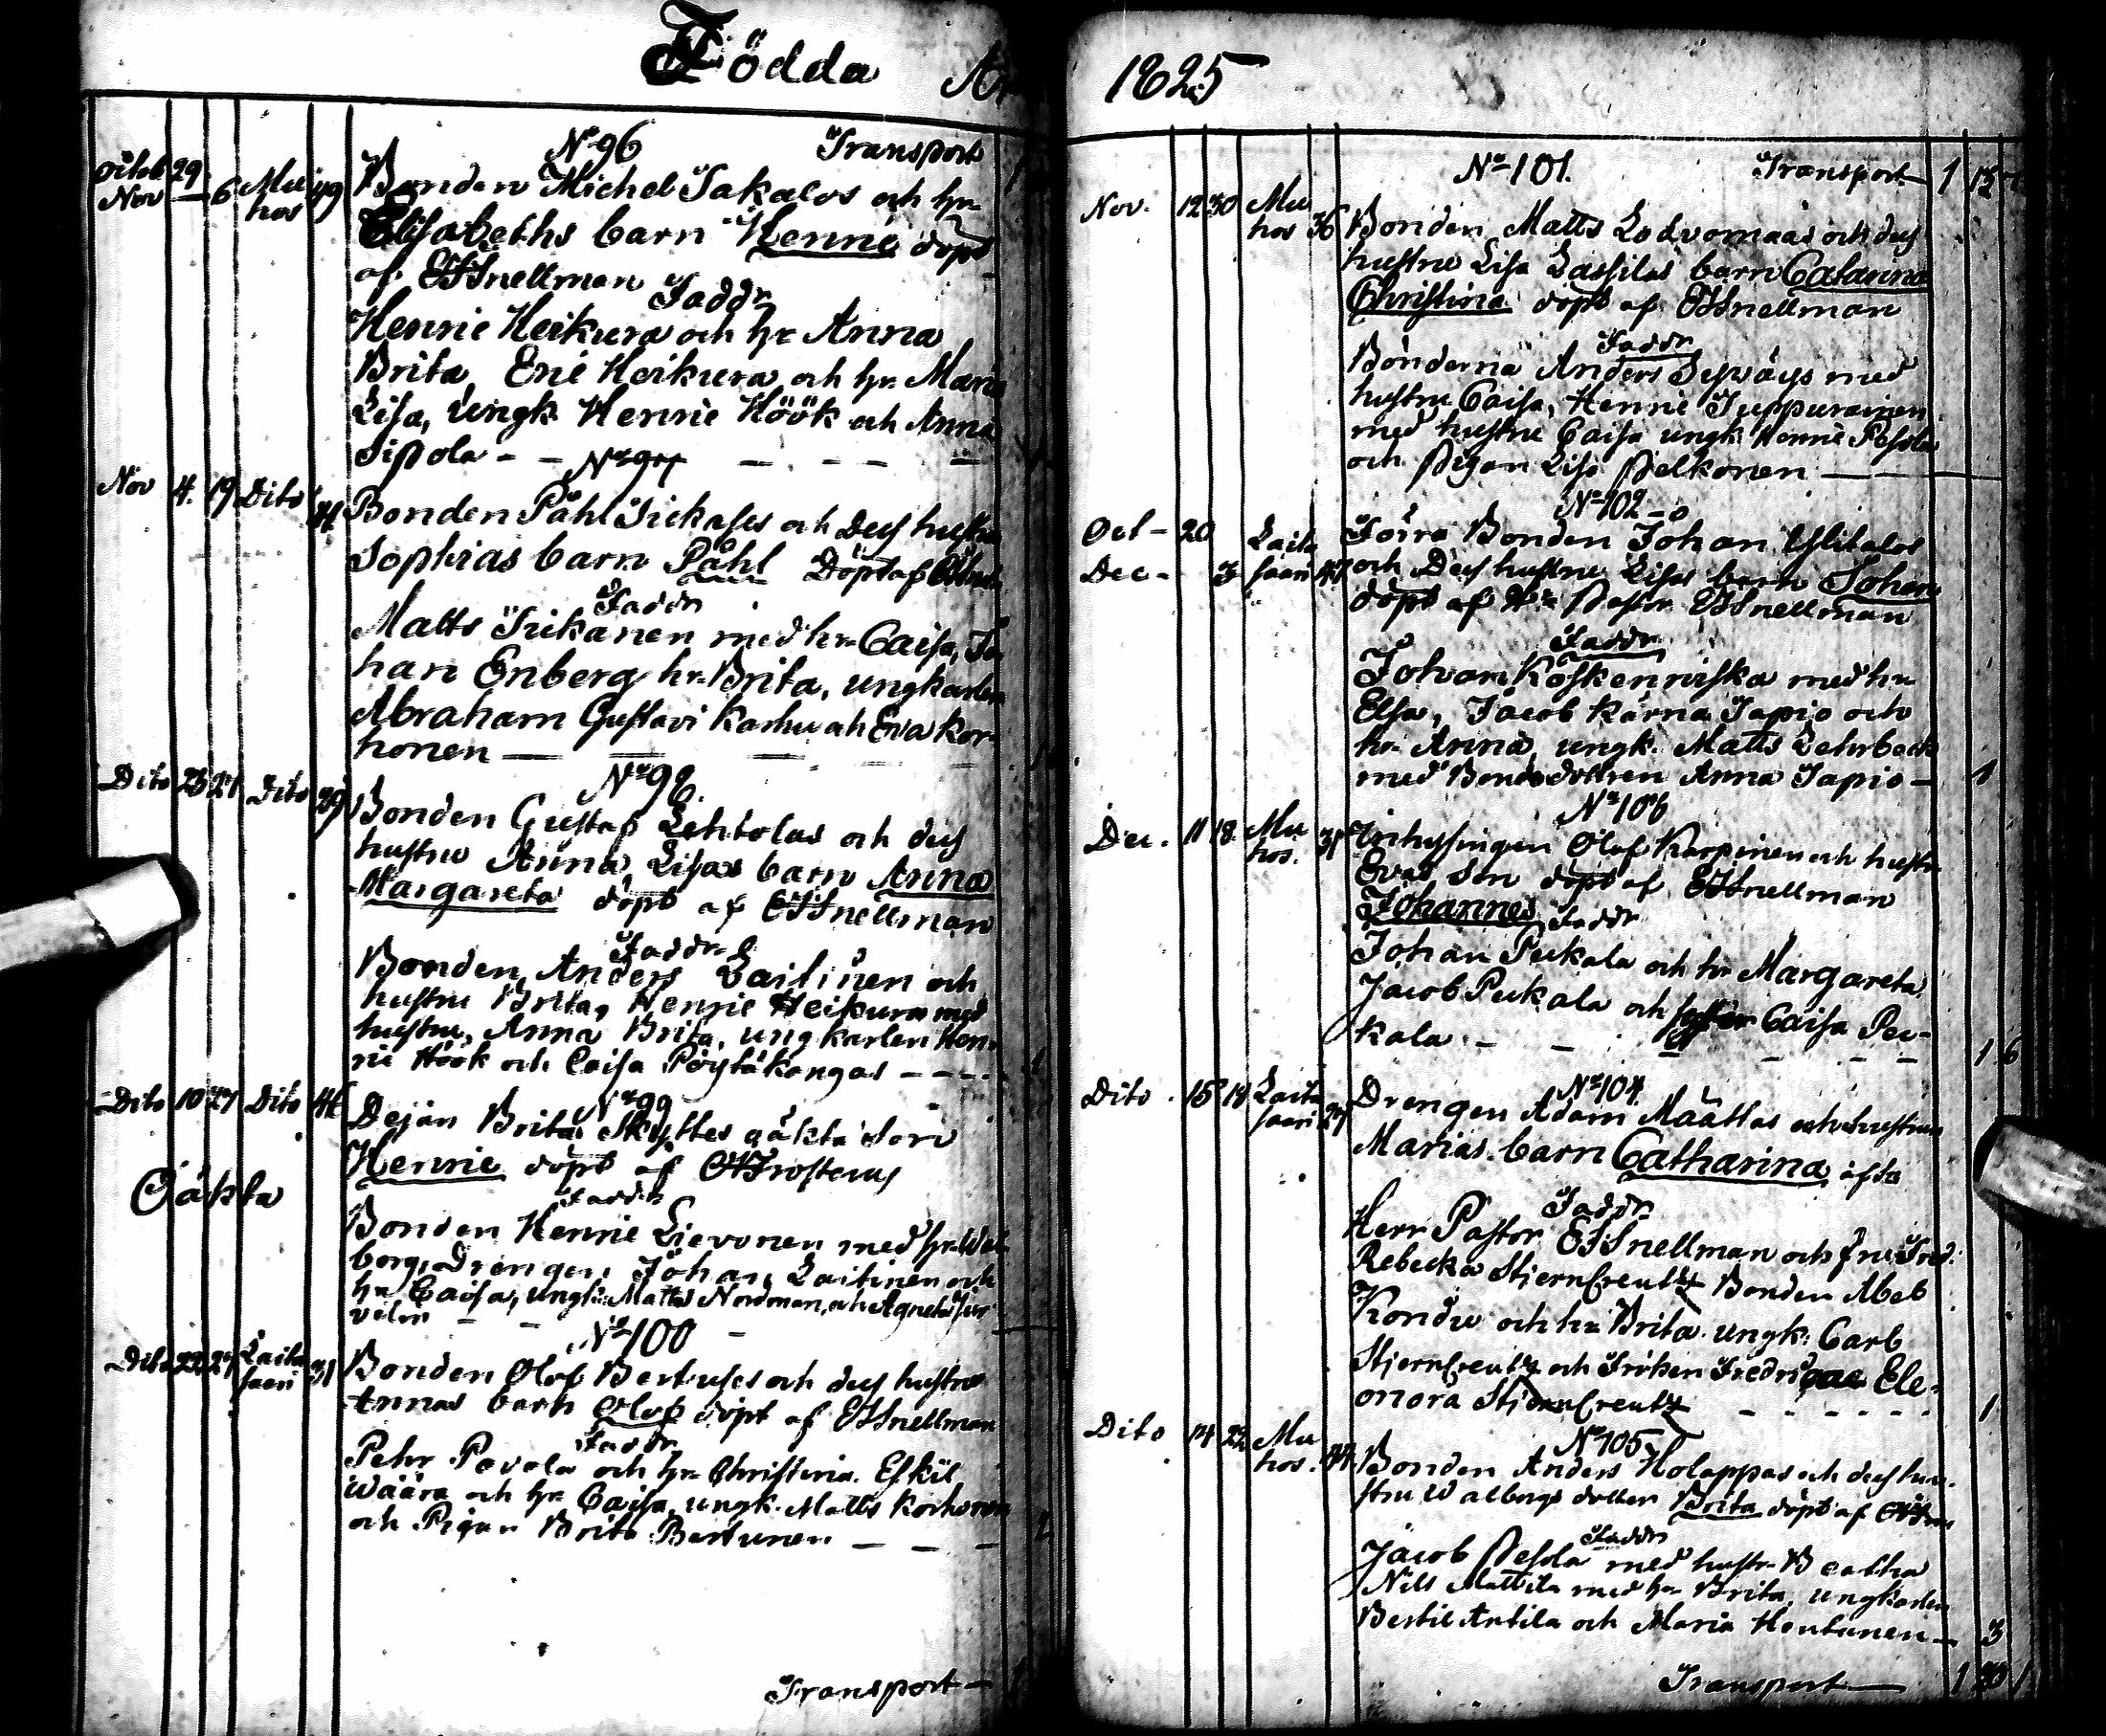 Födda
N 96 Transport
Octob 29
Nov — 6 Mu hos 49 Bonden Michel Jakalos och hr
Elisabeths barn Henric döpt
af EJSnellman
Faddr
Henric Heikura och hr Anna
Brita, Eric Heikura och hr Maria
Lisa, ungk Henric Höök och Anna
Sipola
N 97
Nov 4. 19 Dito Bonden Påhl och Dess hustru
Sophias barn Påhl Döpt af
Faddr
Matts med hr Caisa, Jo
han Enberg hr Brita, ungkarlen
Abraham Gustavi Karhu och Eva Kor-
honen
N 98.
Dito 23 27 Dito 29 Bonden Gustaf Lehtolas och dess
hustru Anna Lisas barn Anna
Margareta döpt af EJSnellman
Faddr
Bonden Anders Laitinen och
hustru Brita, Henric Heikura med
hustru, Anna Brita, ungkarlen Hen-
ric Höök och Caisa Pöytäkangas
N 99
Dito 10 27 Dito Dejan Britas Skyttes oäkta son
Henric döpt af Frosterus
Oäkta
Faddr
Bonden Henric Lievonen med hr Wal
borg, Drengen Johan Laitinen och
hr Caisa, ungk: Matts Nordman, och Agneta
N 100
Dito 22 27 Laita saari 31 Bonden Olof Bertuses och dess hustru
Annas barn Olof döpt af EJSnellman
Faddr
Pehr Pavola och hr Christina. Eskil
Wäära och hr Caisa, ungk. Matts Korhonen
och Pigan Brita Bertunen
Transport
1825
N 101. Transport 1
Nov. 12 30 Mu hos 36 Bonden Matts Lodvomaas och dess
hustru Lisa Lassilas barn Catarina
Christina döpt af EJSnellman
Faddr
Bönderna Anders med
hustru Caisa, Henric Juppurainen
med hustru Caisa ungk. Henric Pesola
och Pigan Lisa Pelkonen
N 102
Oct 20
Dec 3 Laita saari 47 Förra Bonden Johan Ylitalos
och Dess hustru Lisas barn Johan
döpt af Hr Pastor EJSnellman
Faddr
Johan Koskenniska med hr
Elsa, Jacob Kärnä Tapio och
hr Anna, ungk. Matts Lehrbeck
med Bondedottren Anna Tapio 1
N 103
Dec. 11 18 Mu hos. 31 Inhysingen Olof Karpinen och hustru
Evas Son döpt af EJSnellman
Johannes Faddr
Johan Pukala och hr Margareta,
Jacob Pukala och syster Caisa Pu-
kala 1 6
N 104
Dito 15 18 Laita saari 27 Drengen Adam Määttas och hustrus
Marias barn Catharina
Faddr
Herr Pastor EJSnellman och fru Fred:
Rebecka StjernCreutz Bonden Abel
Kondu och hr Brita. ungk: Carl
StjernCreutz och Fröken Ele-
onora StjernCreutz 1
N 105
Dito 14 22 Mu hos. 44 Bonden Anders Holappas och dess hu-
stru Walborgs dotter Brita döpt af
Faddr
Jacob Pesola med hustr Beatha
Nils Mattila med hr Brita, ungkarlen
Bertil Antila och Maria Heutunen 3
Transport 1 20